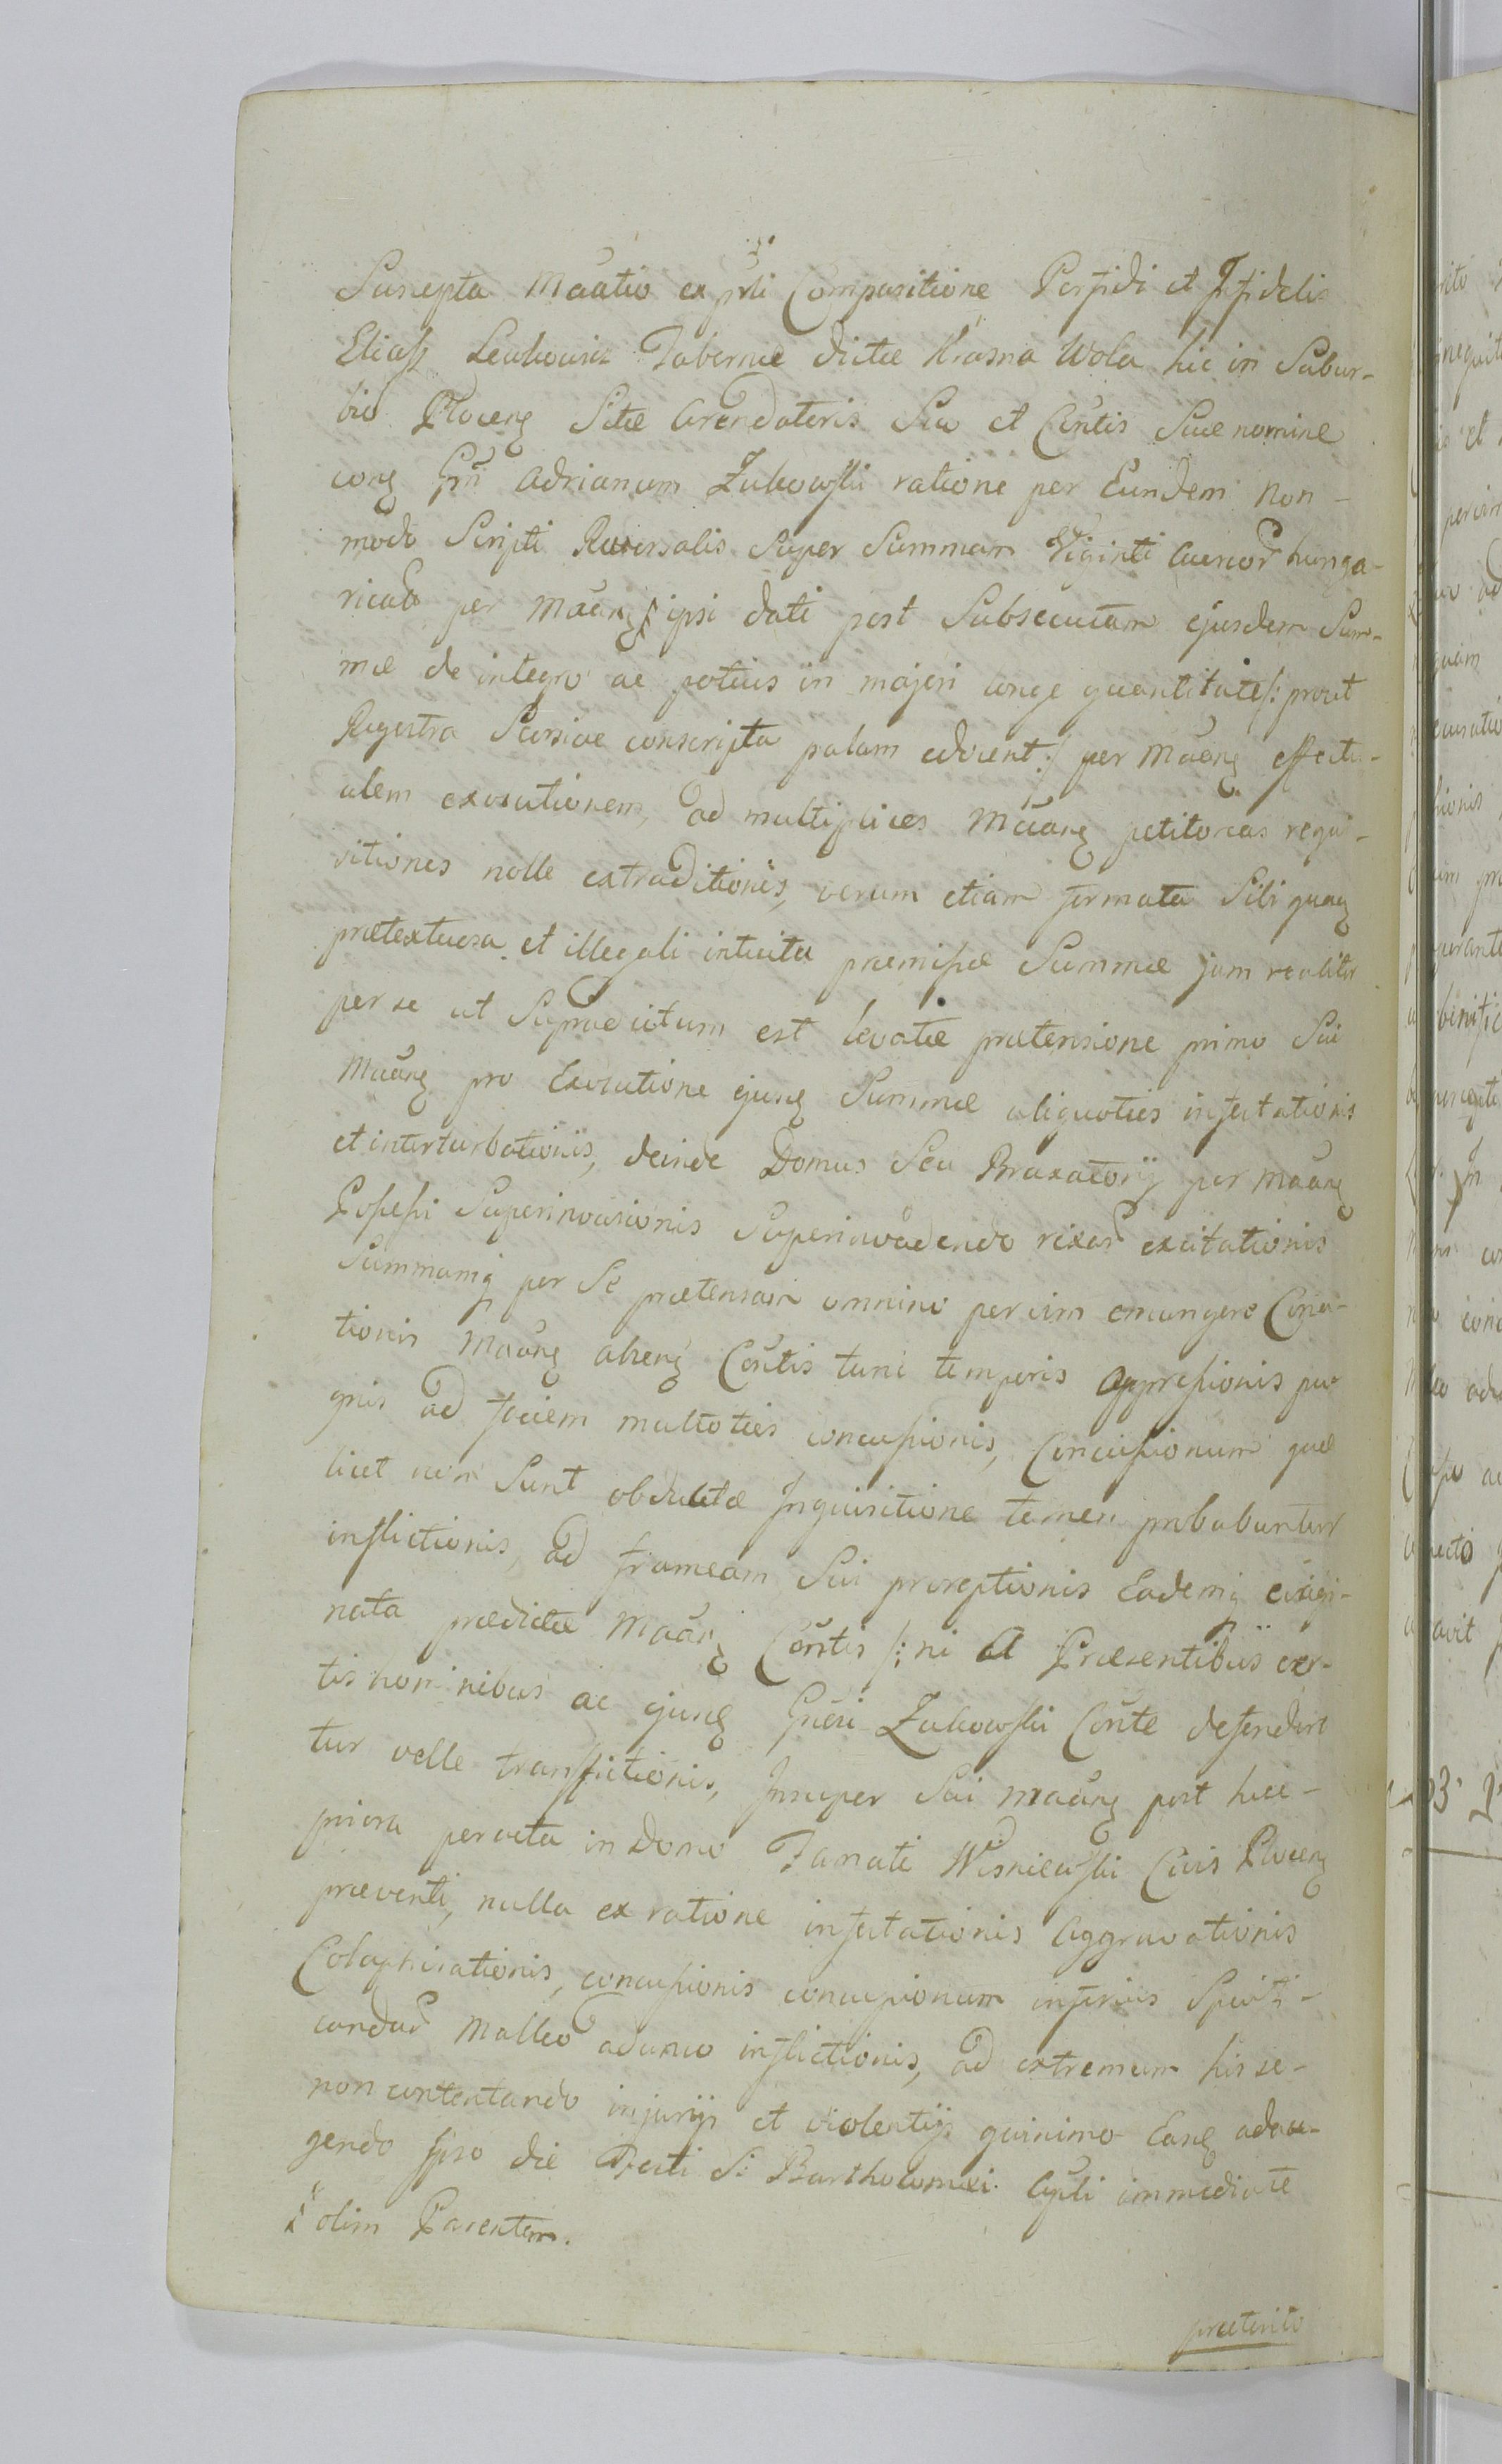 Suscepta Mãatio ex pr̃li Compositione Perfidi et Infidelis
Eliasz Lewkowicz Tabernæ dictæ Krasna Wola hic in Subur-
bio Plocen̄ Sitæ Arendatoris Suo et Cõntis Suæ nomine
con̄ Gñ Adrianum Zukowski ratione per Eundem non-
modo Scripti Reversalis Super Summam Viginti Aureor̄ hunga-
ricalo per Mãan̄ ipsi dati post Subsecutam ejusdem Sum-
mæ de integro ac potius in majori longe quantitate /: prout
Regestra Scorsive conscripta palam edocent :/ per Mãan̄ effectu-
alem exolutionem, ad multiplices Mãan̄ petitoreas requi-
sitiones nolle extraditionis, verum etiam formata Sibi quaq̄
prætextuosa et illegali intuitu præmissæ Summæ jam realiter
per se ut Supradictum est levatæ prætensione primo Sui
Mãan̄ pro Exolutione ejusq̄ Summæ aliquoties infestationis
et interturbationis, deinde Domus Seu Braxatorij per Mãan̄
Possessi Superinvasionis Superinvadendo rixar̄ excitationis
Summamq̄ per Se prætensam omnino per vim emungere Cona-
tionis Mãan̄ absen̄ Cõntis tunc temporis Oppressionis pu
gnis ad faciem multoties concussionis, Concussionum quæ
licet non Sunt obductæ Inquisitione tamen probabuntur
inflictionis, ad frameam Sui proreptionis Eademq̄ evagi-
nata prædictæ Mãan̄ Cõntis /: ni A Præsentibus cer-
tis nominibus ac ejusq̄ Gñesi Zukowski Cõnte defendere
tur velle transfictionis, Insuper Sui Mãan̄ post hæc-
priora peracta in Domo Famati Wisniewski Civis Plocen̄
præventi, nulla ex ratione infestationis Aggravationis
Colaphisationis, concussionis concussionum inferius Specifi-
candar̄ Malleo adunco inflictionis, ad extremum his se-
non contentando injurijs et violentijs quinimo Easq̄ adau-
gendo Ipso die Festi S: Bartholomæi Apli immediate
olim Parentem.
præterito